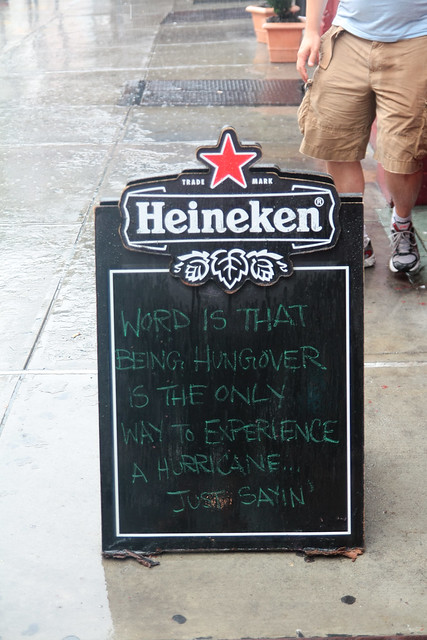 TRADE MARK
Heineken®
WORD IS THAT
BEING HUNGOVER
IS THE ONLY
WAY TO EXPERIENCE
A HURRICANE...
JUST SAYIN'